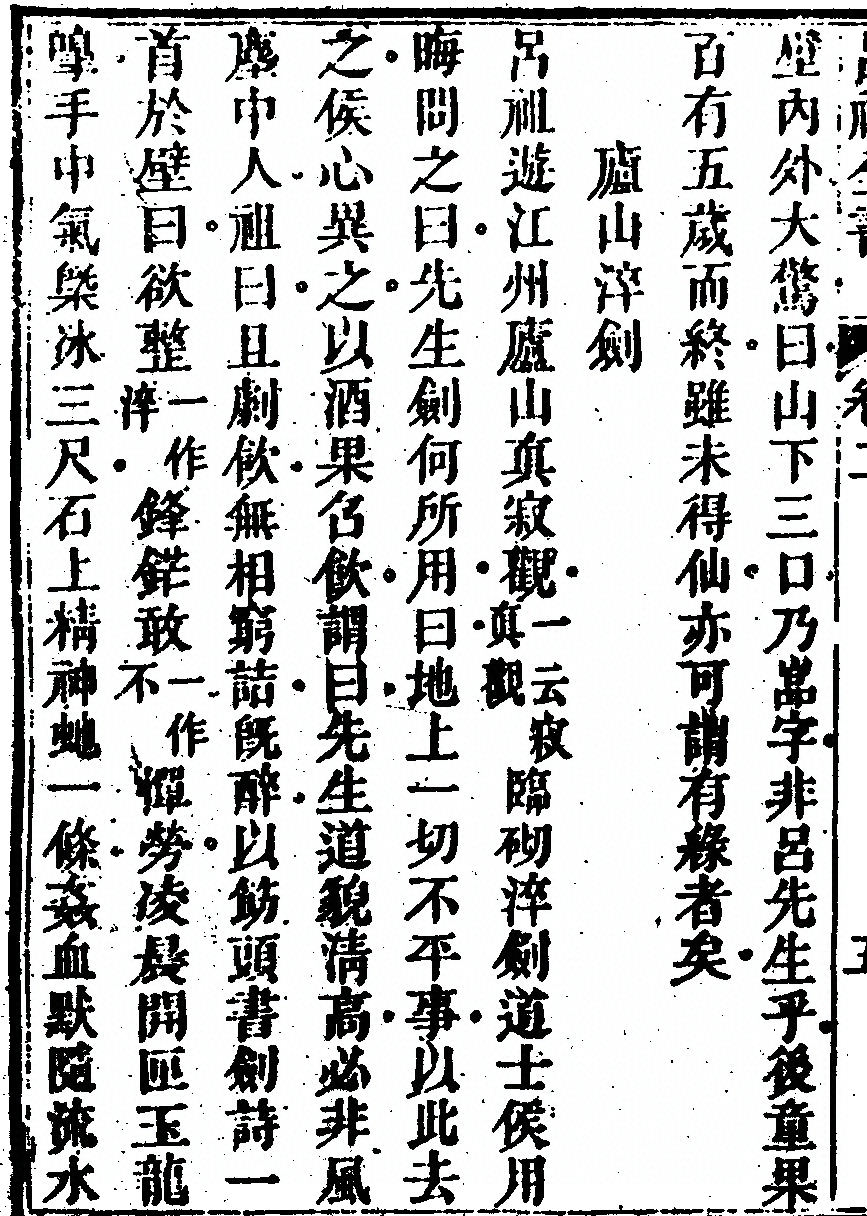 壁內外大驚曰山下三口乃嵒字非呂先生乎後童果
百有五歲而終雖未得仙亦可謂有緣者矣
廬山淬劍
呂祖遊江州廬山真寂觀一云寂真觀臨砌淬劍道士侯用
晦問之曰先生劍何所用曰地上一切不平事以此去
之侯心異之以酒果召飲謂曰先生道貌清高必非風
塵中人祖曰且劇飲無相窮詰既醉以筯頭書劍詩一
首於壁曰欲整一作淬鋒鋩敢一作不憚勞凌晨開匣玉龍
嘷手中氣槩冰三尺石上精神虵一條姦血默隨流水